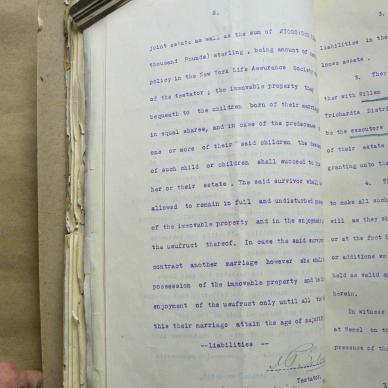 2.
joint estate as well as the sum of £1000:0:0
thousand Pounds) sterling , being amount of
policy in the New York Life Assurance Society
of the testator ; the immovable property they
bequeath to the children born of their marriage
in equal shares, and in case of the predecease
one or more of their said children the
of such child or children shall succeed to
her or their estate . The said survivor shall
allowed to remain in full and undisturbed
of the immovable property and in the enjoyment
the usufruct thereof. In case the said
contract another marriage however she shall
possession of the immovable property and
enjoyment of the usufruct only until all
this their marriage attain the age of
--liabilities --
Testator.
3.
liabilities in the
loose asset.
3. Ther
ther with Willem
Trichardts Distri
be the executors
of their estate
granting unto the
4. T
to make all such
will as they sh
or at the foot
or additions wo
held as valid
herein.
In witness
at Hemel on t
presence of the